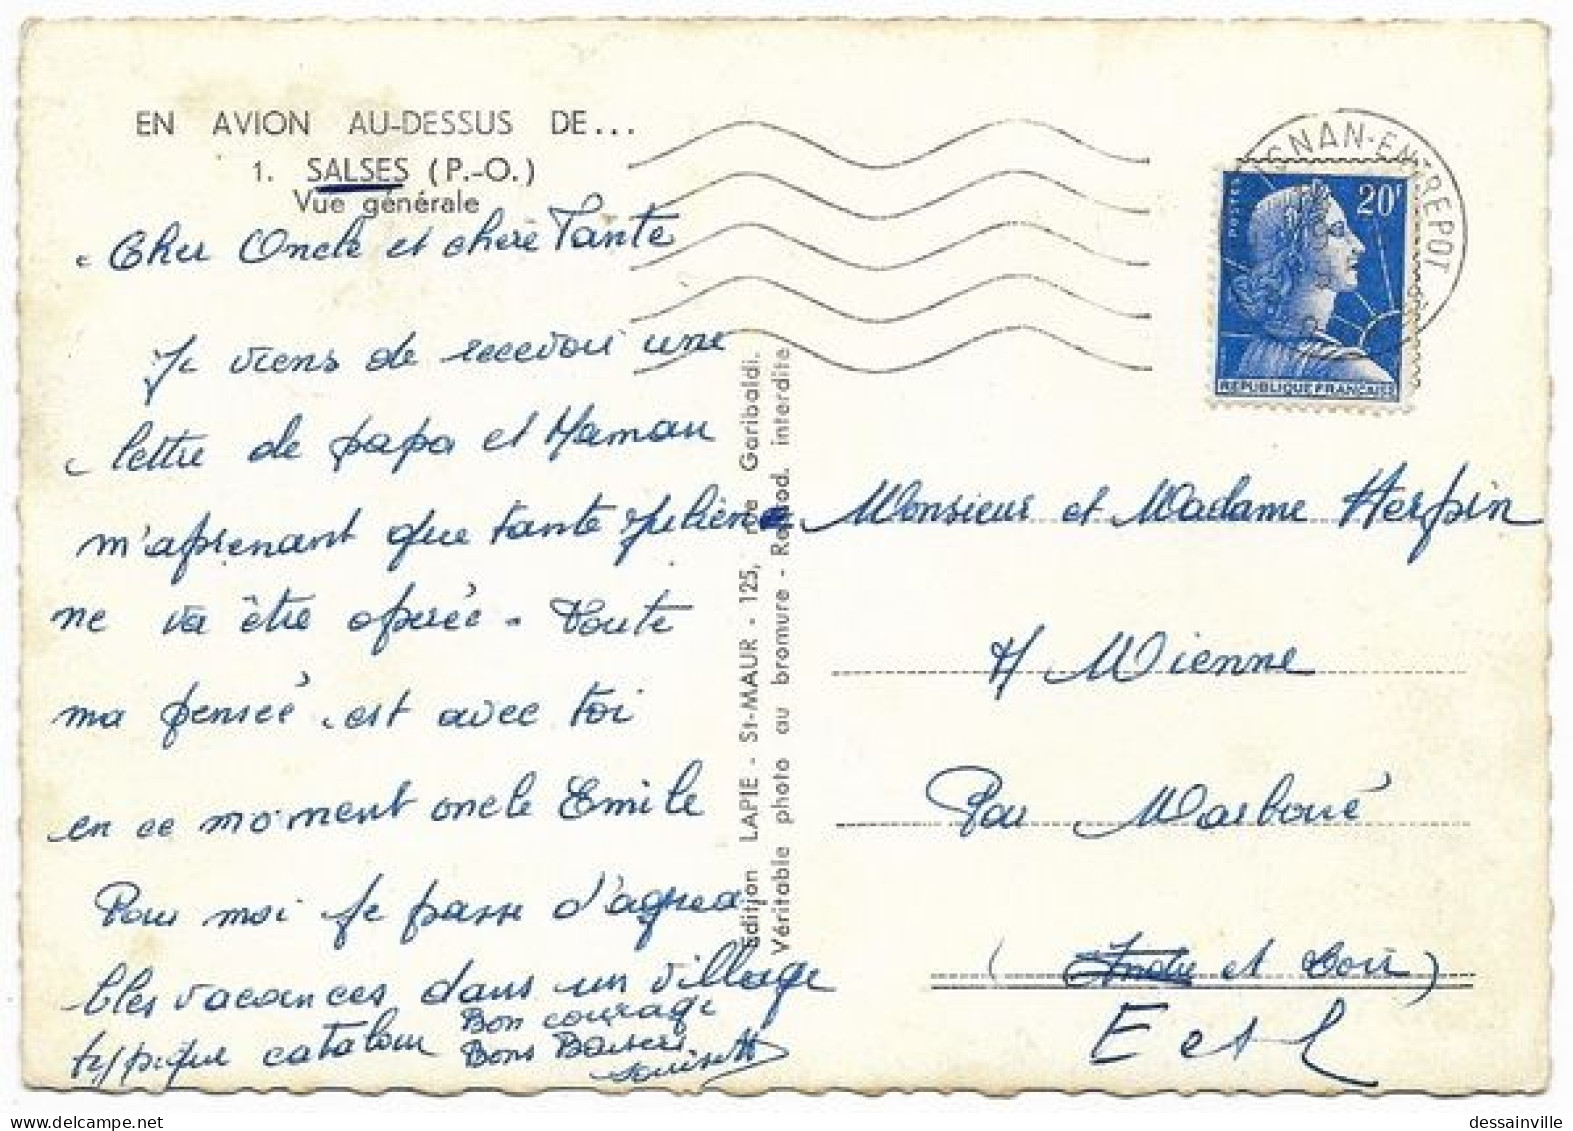 EN AVION AU-DESSUS DE...
1. SALSES (P.-O.)
Vue générale
Cher Oncle et chère Tante
Je viens de recevoir une
lettre de papa et Maman
m'aprenant que tante
ne va être opérée. Toute
ma pensée est avec toi
en ce moment oncle Emile
Pour moi je passe d'agréa
bles vacances dans un village
typique catalan
Bon courage
Bons Baisers
Edition LAPIE - St-MAUR - 125, rue Garibaldi.
Véritable photo au bromure - Reprod. interdite
IGNAN-ENTREPOT
POSTES
20F
REPUBLIQUE FRANÇAISE
Monsieur et Madame Herpin
Par Marboué
(Indre et Loir)
E et L
dessainville